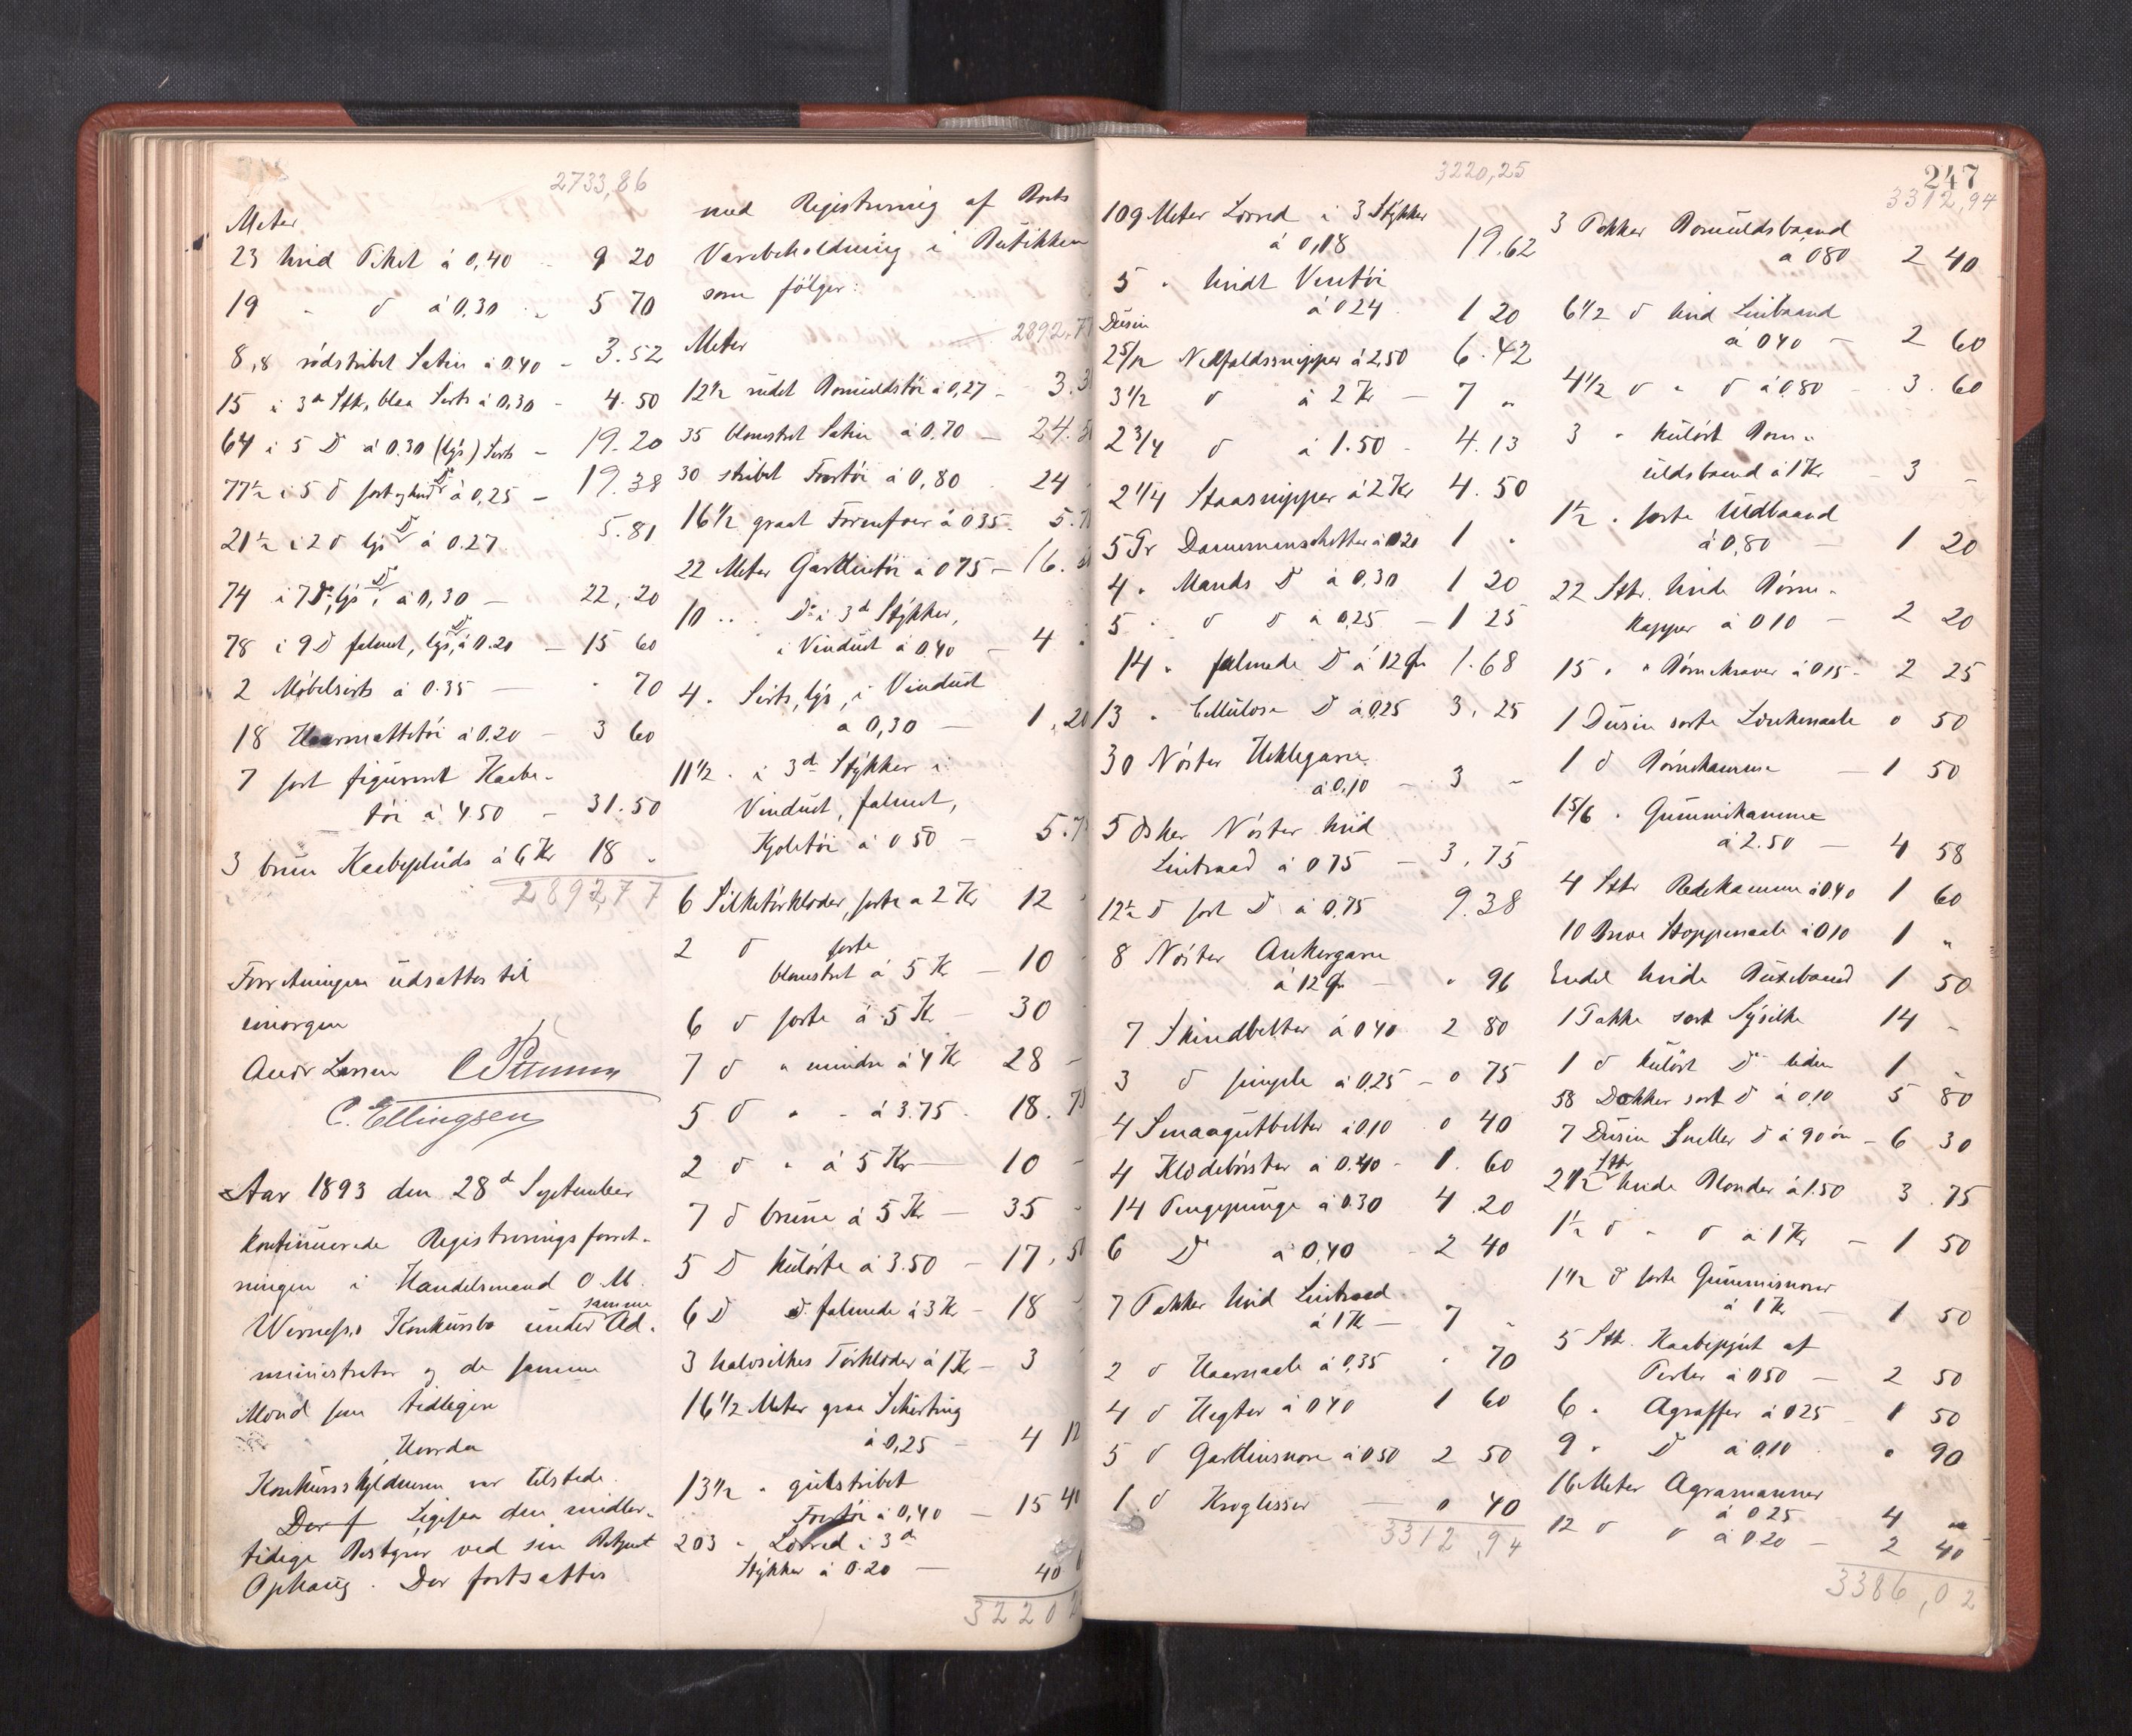 2733,86
Meter
23 hvid Piket à 0,40 - 9 20
19 " d à 0.30 - 5 70
8,8 rödstribet Satin à 0.40 - 3.52
15 i 3 Stk. blaa Sirts à 0,30 - 4.50
64 i 5 D à 0.30 (lys) Sirts - 19.20
77½ i 5 d sort og hvid D à 0,25 - 19.38
21½ i 2 d lys D à 0.27 5.81
74 i 7 D lys D à 0,30 - 22,20
78 i 9 D falmet, lys D à 0.20 - 15 60
2 Möbelsirts à 0.35 - " 70
18 Haarmattetöi à 0.20 - 3 60
7 sort figureret Kaabe-
töi à 4.50 - 31.50
3 brun Kaabepluds à 6 Kr 18 "
2892,77
Forretningen udsattes til
imorgen
Andr Larsen
C. Ellingsen
Aar 1893 den 28d September
kontinuerede Registreringsforret-
ningen i Handelsmand O. M.
Konkursbo under samme Ad-
ministrator og de samme
Mænd som tidligere
Hvorda
Konkursskyldneren var tilstede.
Der f Ligesaa den midler-
tidige Bestyrer ved sin
Ophang. Der fortsattes
med Registrering af Boets
Varebeholdning i Butikken
som fölger:
2892,77
Meter
12½ rudet Bomuldstöi à 0,27 - 3.3
35 blomstret Satin à 0.70 - 24.5
30 stribet Fortöi à 0,80 24
16½ graat Foer à 0 35 - 5.7
22 Meter Gardintöi à 0 75 - 16.
10 " Do i 3d Stykker,
i Vinduet à 0.40 - 4
4 " Sirts, lys, i Vinduet
à 0,30 - 1,20
11½ " i 3d Stykker i
Vinduet, falmet,
Kjoletöi à 0 50 - 5.7
6 Silketörklæder, sorte a 2 Kr 12
2 d sorte
blomstret à 5 K - 10
6 d sorte à 5 K - 30
7 d " mindre à 4 K 28 -
5 d " - à 3.75 - 18.7
2 d " à 5 Kr - 10 -
7 d brune à 5 K - 35
5 D kulörte à 3.50 - 17,50
6 D d. falmede à 3 K - 18
3 halvsilkes Törklæder à 1 K - 3
16½ Meter graa Schirting
à 0,25 - 4 12
13½ " gulstribet
Fortöi à 0,40 - 15 40
203 " Lærred i 3d
Stykker à 0.20 - 40
3220
3220,25
109 Meter Lærred i 3 Stykker
à 0,18 19.62
5 " hvidt
à 0 24 1 20
Dusin
25/12 Nedfaldssnipper à 2,50 6.42
3½ d à 2 Kr - 7 "
2¾ d à 1.50 - 4.13
2¼ Staasnipper à 2 Kr 4.50
5 Pr Damemanschetter à 0 20 1 "
4 " Mands D à 0,30 1 20
5 " d d à 0,25 - 1 25
14 " falmede D à 12 Ør 1.68
13 " Cellulose D à 0,25 3.25
30 Nöster Heklegarn
à 0,10 - 3 -
5 Æsker Nöster hvid
Lintraad à 0 75 - 3.75
12½ D sort D à 0,75 9.38
8 Nöster Ankergarn
à 12 Ør - " 96
7 Skindbelter à 0 40 2 80
3 d simple à 0,25 - 0 75
4 Smaagutbelter à 0,10 0 40
4 Klædebörster à 0.40 - 1.60
14 Pengepunge à 0.30 4.20
6 D à 0,40 - 2 40
7 Pakker hvid Lintraad
à 1 K - 7 -
2 d Haarnaale à 0,35 " 70
4 d Hegter à 0 40 1 60
5 d Gardinsnore à 0 50 2 50
1 d Kroglisser - 0 40
3312,94
247
3312,94
3 Pakker Bomuldsbaand
à 0 80 2 40
6½ d hvid Linbaand
à 0 40 - 2 60
4½ d " d à 0.80 - 3.60
3 " kulört Bom-
uldsbaand à 1 Kr - 3 -
1½ " sorte Uldbaand
à 0,80 - 1 20
22 Stk. hvide Börne-
kapper à 0 10 - 2 20
15 " " Börnekraver à 0 15 - 2 25
1 Dusin sorte 0 50
1 d Börnekamme - 1 50
1 5/6 " Gummikamme
à 2.50 - 4 58
4 Stk Redekamme à 0.40 1 60
10 Breve Stoppenaale à 0.10 1 "
Endel hvide 1 50
1 Pakke sort Sysilke 14 -
1 d kulört D liden 1 -
58 Dokker sort d à 0,10 5 80
7 Dusin Sneller d à 90 ör - 6 30
2½ Stk hvide Blonder à 1.50 3.75
1½ d " d à 1 Kr - 1 50
1½ d sorte Gummisnorer
à 1 Kr - 1 50
5 Stk. Kaabepynt af
Perler à 0 50 - 2 50
6 " Agraffer à 0 25 - 1 50
9 " D à 0,10 " 90
16 Meter Agramanner
à 0 25 4 "
12 d d à 0 20 - 2 40
3386,02